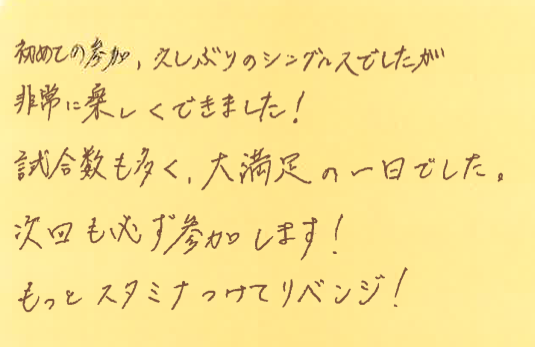 初めての参加、久しぶりのシングルスでしたが
非常に楽しくできました!
試合数も多く、大満足の一日でした。
次回も必ず参加します!
もっとスタミナつけてリベンジ!